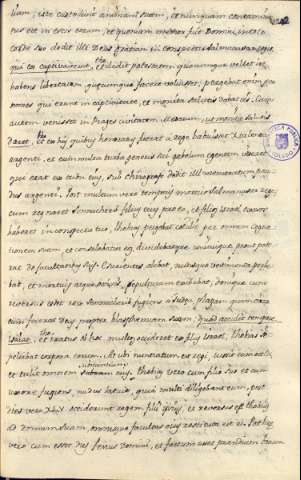 liam; iste custodivit animam suam, et nunquam contamina
tus est in escis eorum, et quoniam memor fuit Domini, in toto
corde suo dedit illi Deus gratiam in conspectu Salmanasar regis,
qui eos captivaverat, et dedit potestatem quocumque vellet ire,
habens libertatem quæcumque facere voluisset, pergebat
qui erant in captivitate, et monita salutis dabat eis. Cum
autem venisset in Rages civitatem Medorum, et monita salutis
daret, et ex his quibus honoratus fuerat a rege habuisset X talenta
argenti, et cum multa turba generis sui gabelum egentem videret
qui erat ex tribu eius, sub chirographo dedit illi memoratum pon
dus argenti. Post multum vero temporis mortuo Salmanasar rege,
cum regnaret Sennacherib filius eius pro eo, et filios Israel exosos
haberet in conspectu suo, thobias pergebat cotidie per omnem cogna
tionem suam, et consolabatur eos, dividebatque unicuique, prout pote
rat de facultatibus suis. Esurientes alebat, nudisque vestimenta prebe
bat, et mortuis atque occisis, sepulturam exhibebat, denique cum
reversus esset rex Sennacherib fugiens a Judea plagam quam circa
eum fecerat Deus propter blasphemiam suam, quod accidit tempore
et iratus multos occideret ex filiis Israel, thobias se
peliebat corpora eorum. At ubi nunciatum est regi, iussit eum occidi,
et tulit omnem substantiam eius. thobias vero cum filio suo et cum
uxore fugiens, nudus latuit, quia multi diligebant eum, post
dies vero XLV occiderunt regem filii ipsius, et reversus est thobias
in domum suam, omnisque facultas eius restituta est ei. Post hæc
vero cum esset dies festus Domini, et factum esset prandium bonum